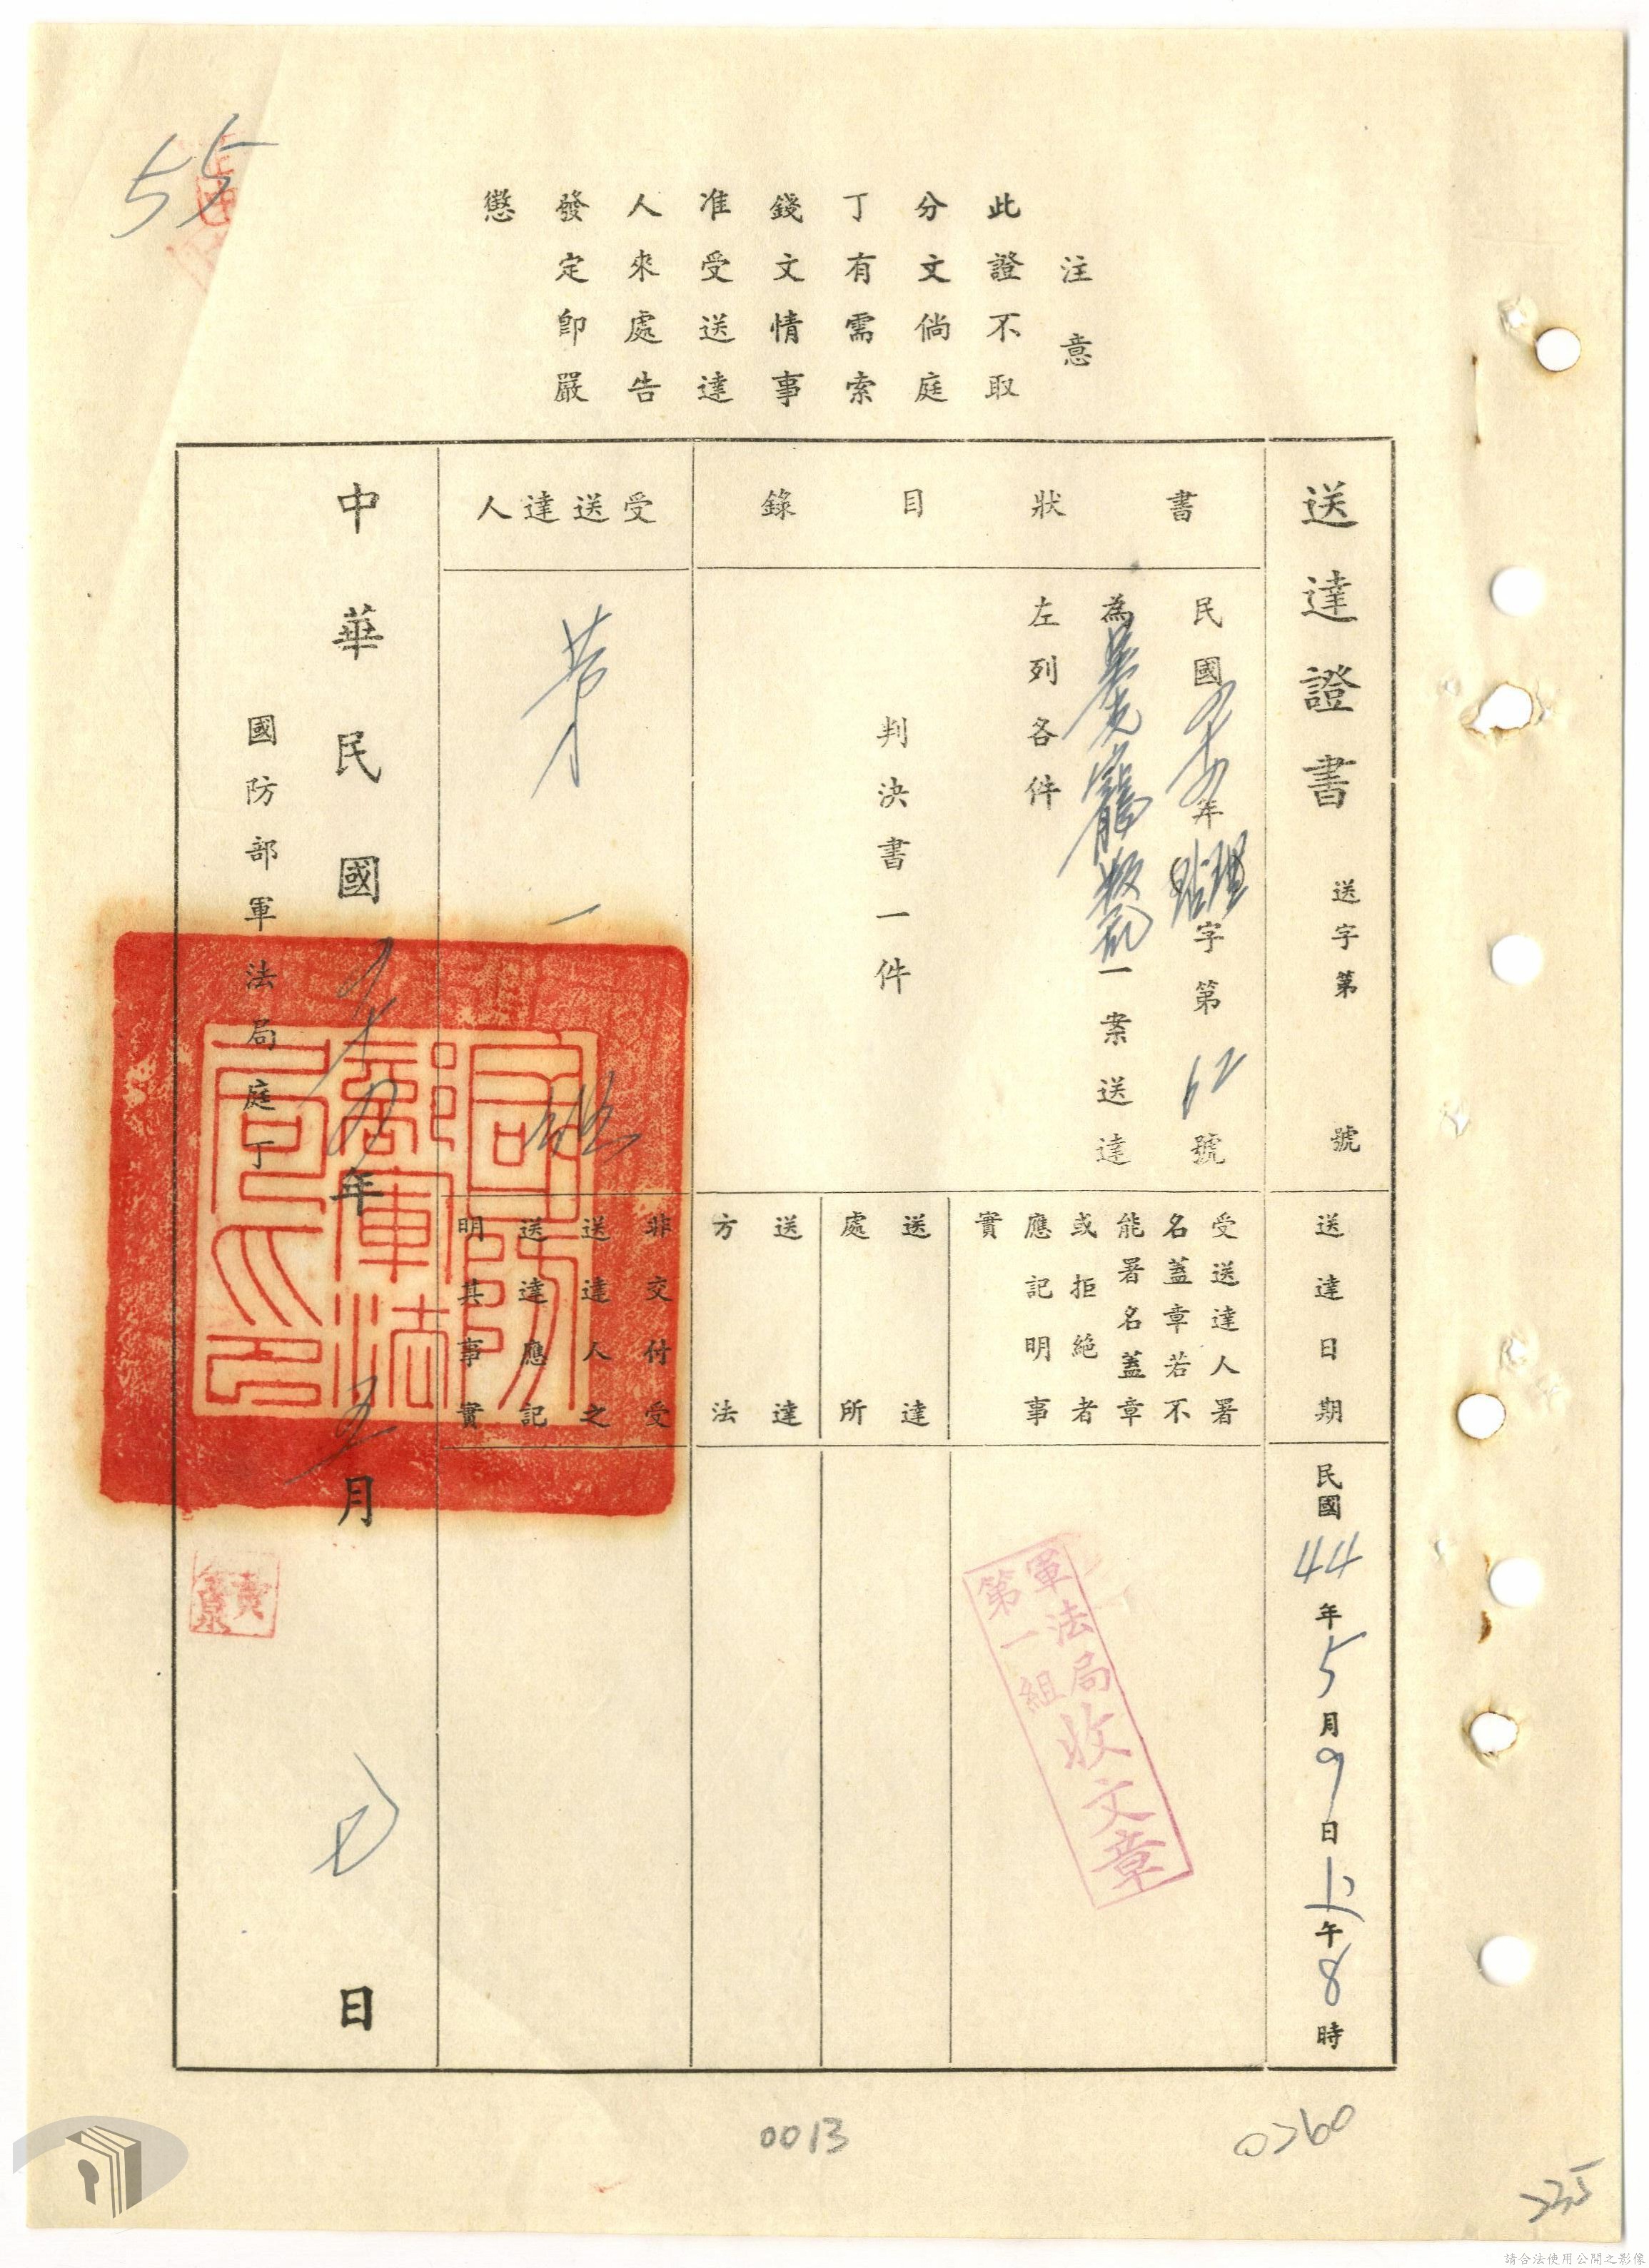 55
注意
此證不取
分文倘庭
丁有需索
錢文情事
准受送達
人來處告
發定即嚴
懲
送達證書 送字第 號
送達日期
民國44年5月9日上午8時
書狀目錄
民國四十四年 字第62號
為吳克 叛亂一案送達
左列各件
判決書一件
受送達人署
名蓋章若不
能署名蓋章
或拒絕者
應記明事
實
軍法局
第一組
收文章
送達
處所
送達
方法
受送達人
第一組
非交付受
送達人之
送達應記
明其事實
中華民國四十四年五月 日
國防部軍法局庭丁
國防部軍法局印
0013
0260
235
請合法使用公開之影像